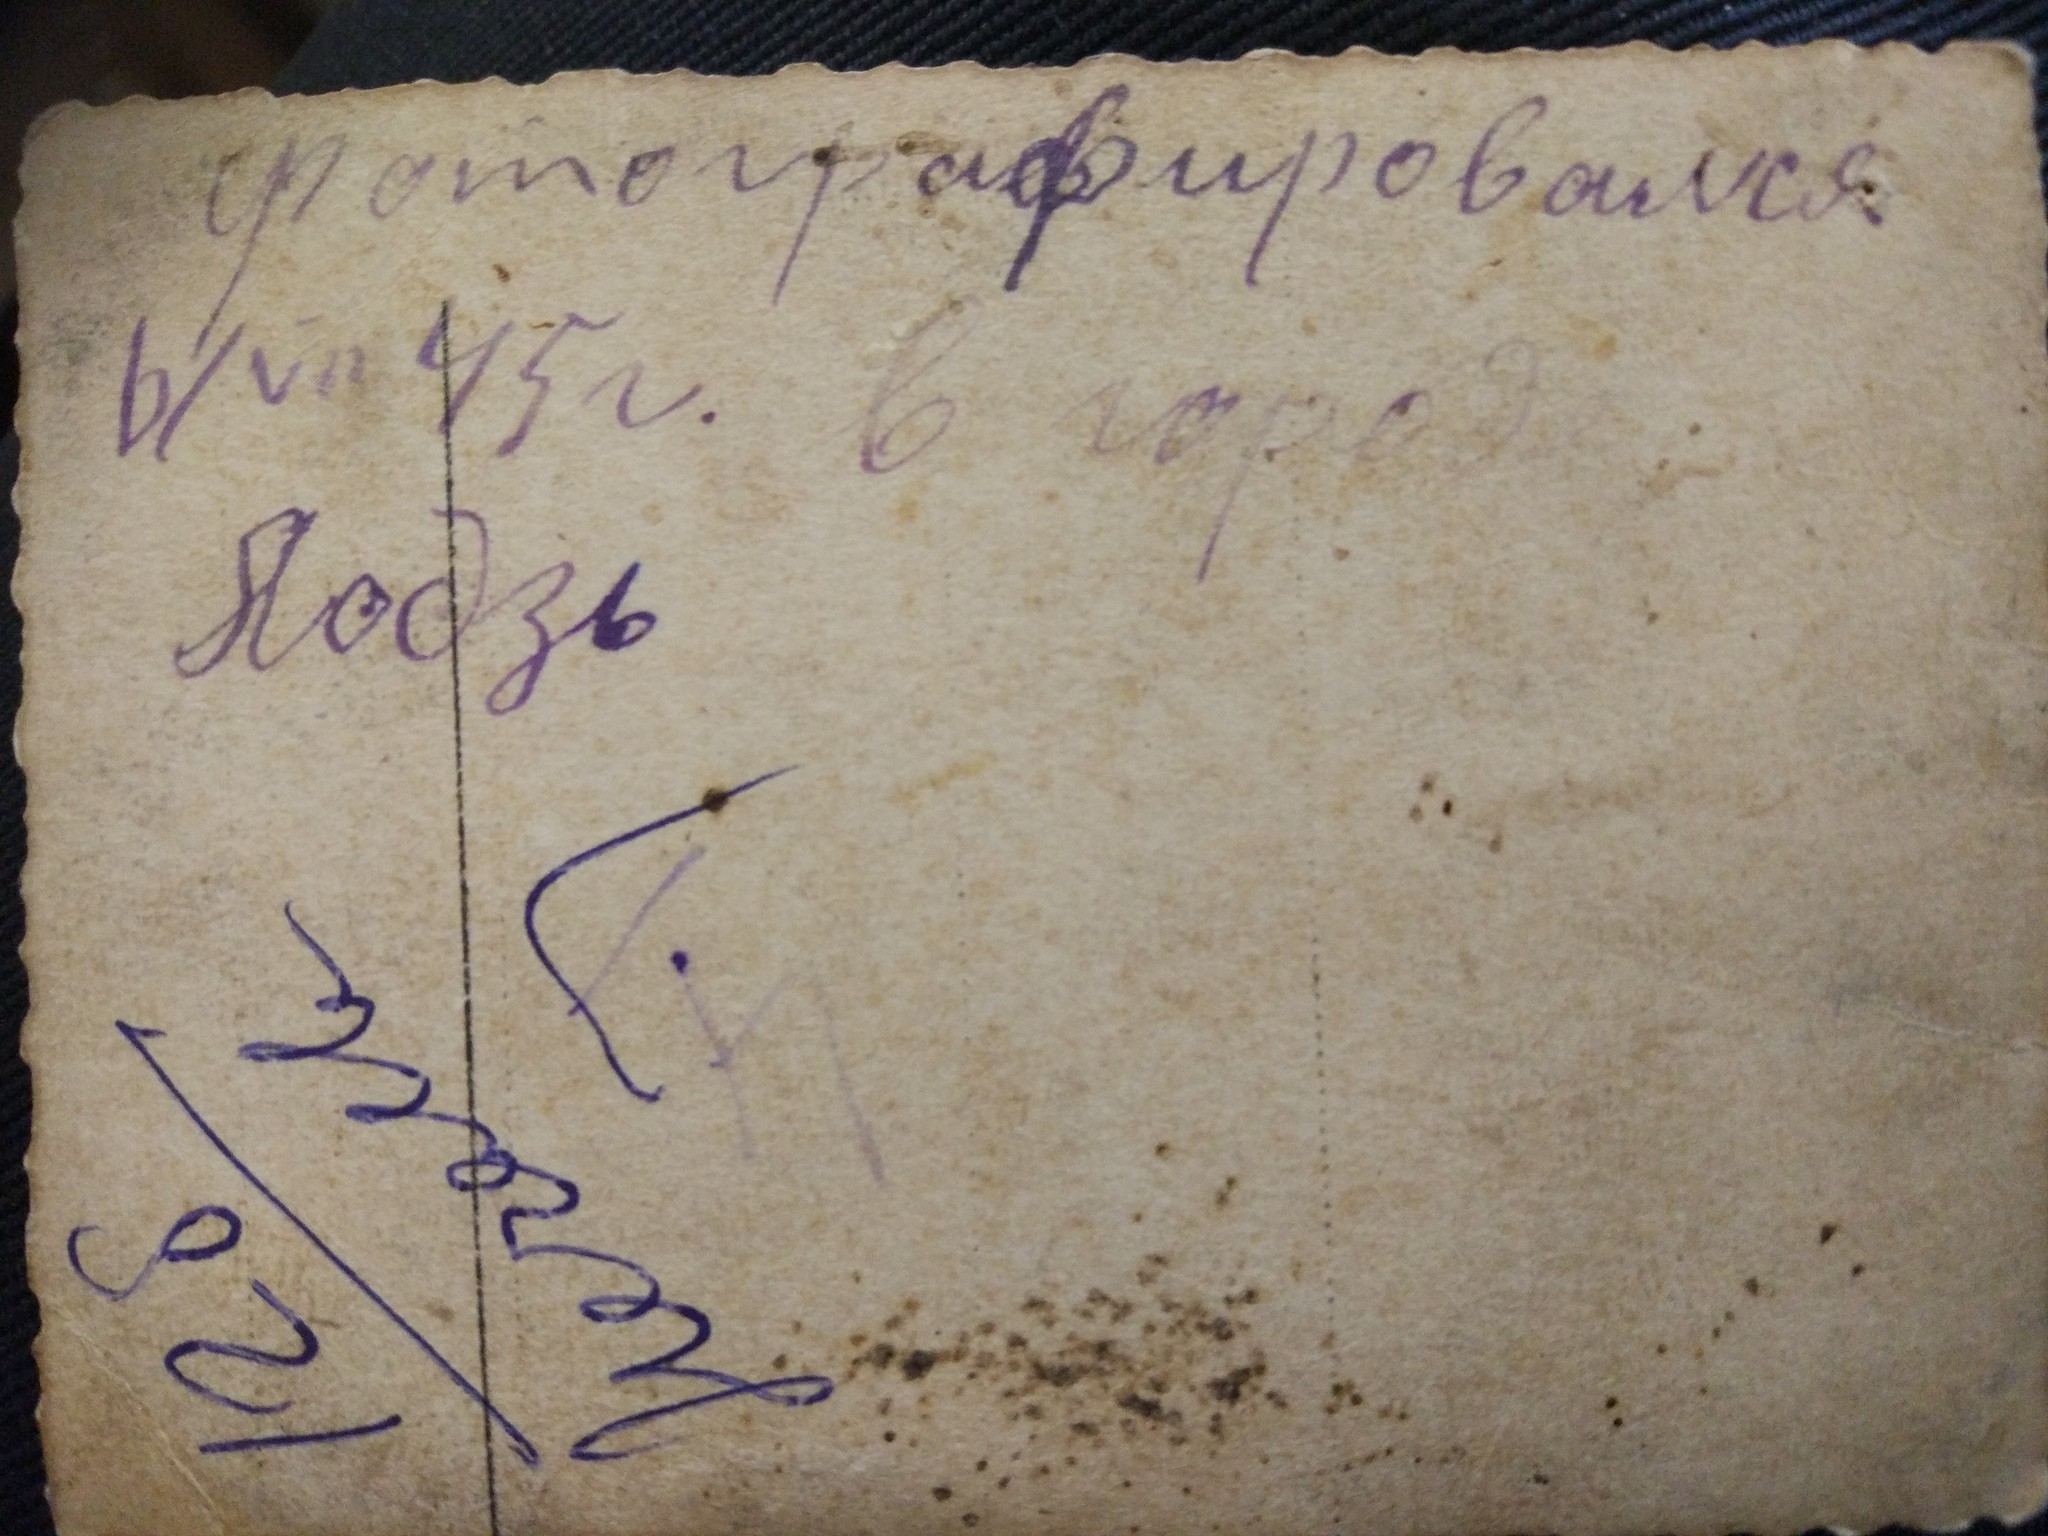 фотографировался
6/VII 45 г. в город
Лодзь
129